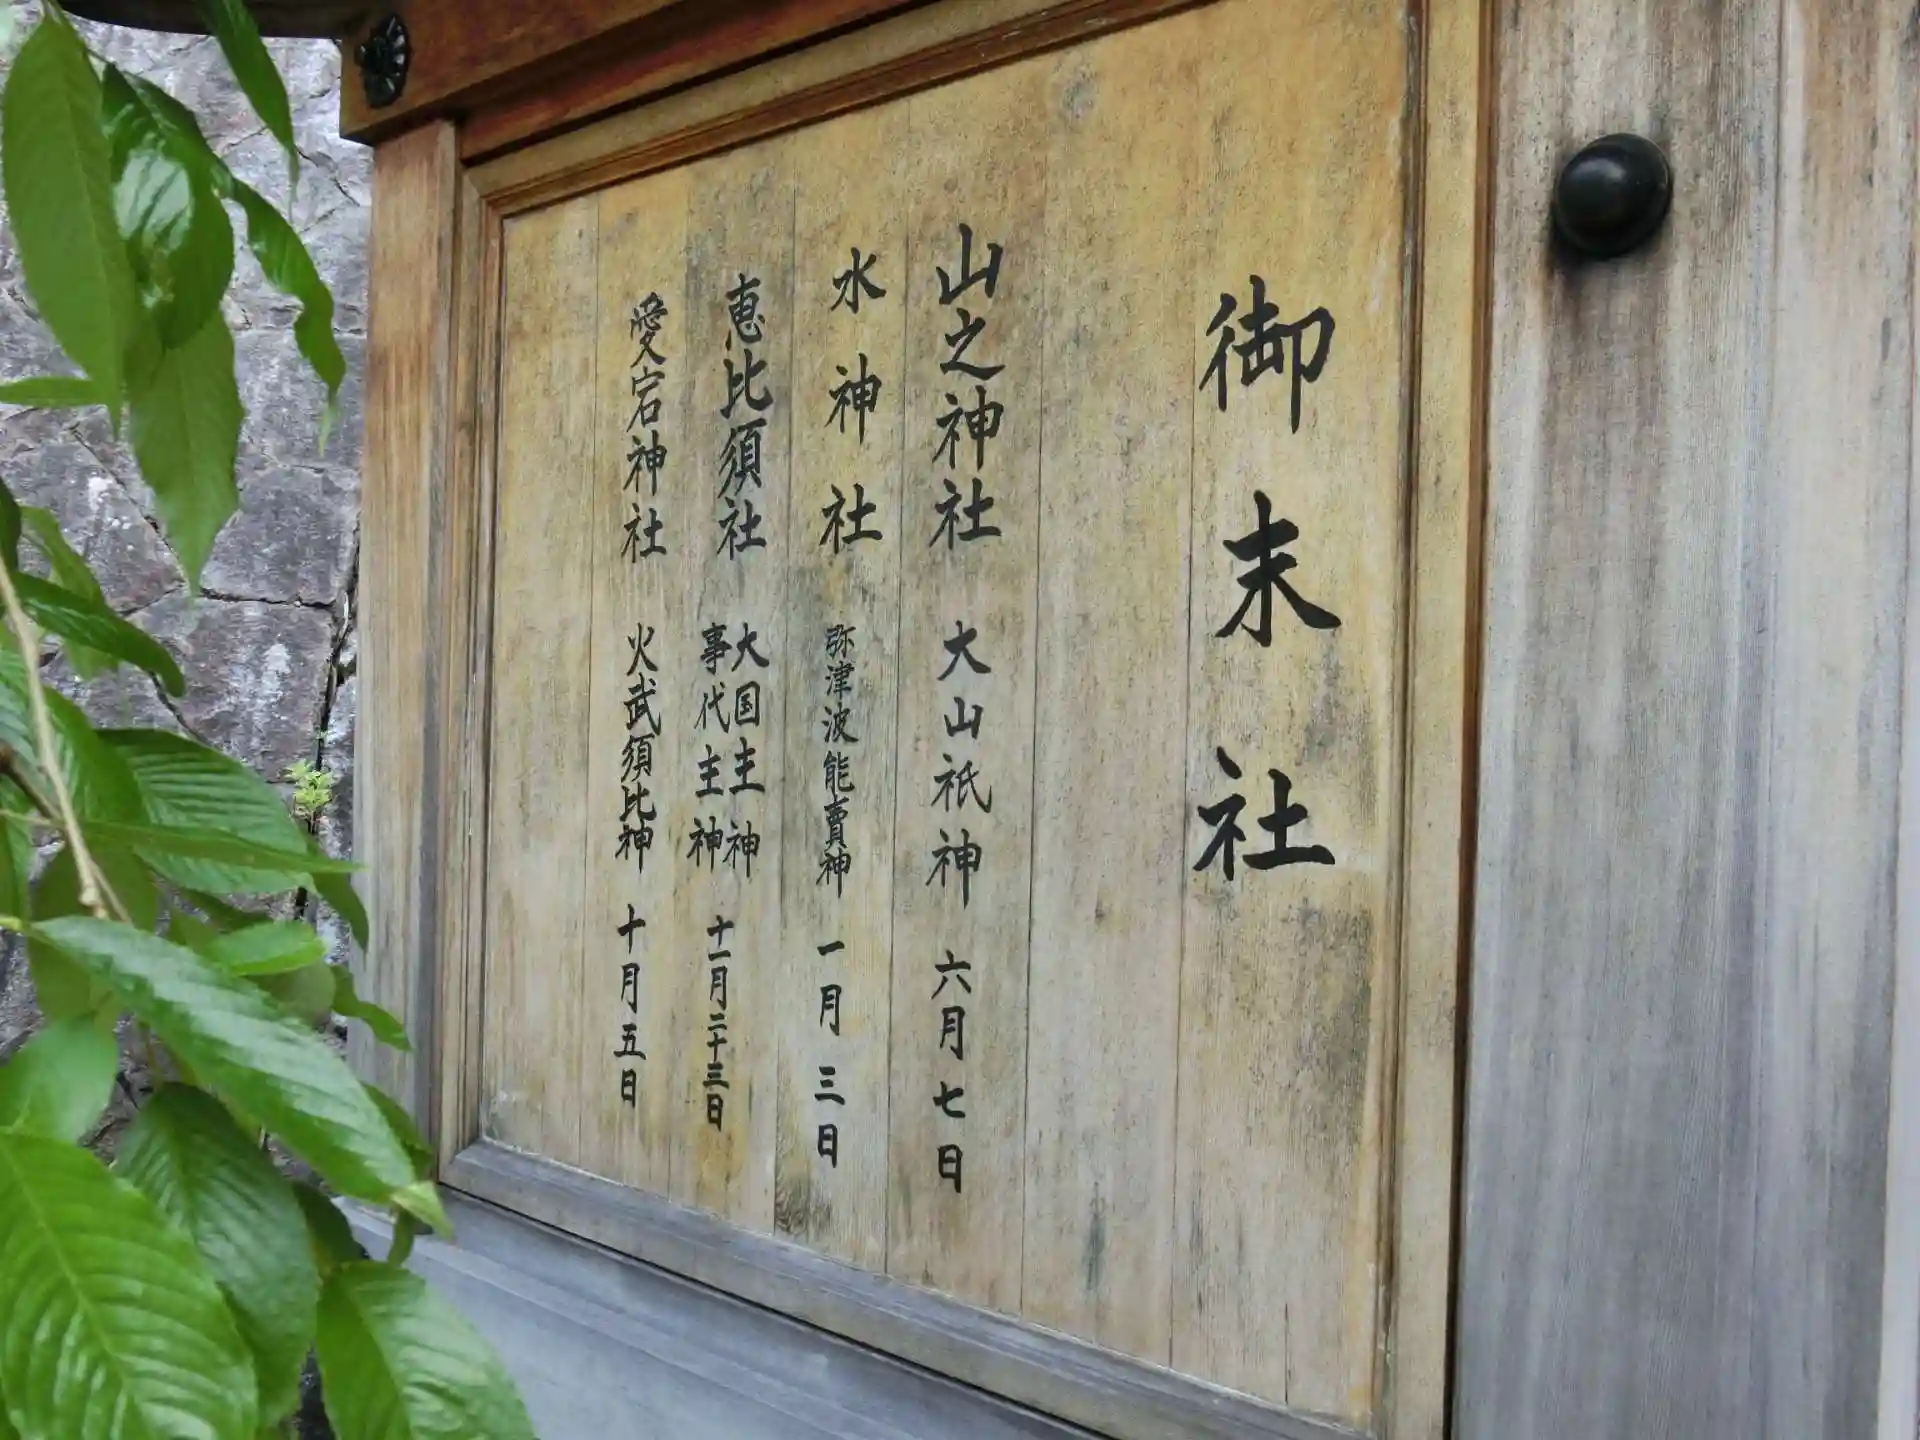 御末社
山之神社 大山祇神 六月七日
水神社 弥津波能賣神 一月三日
恵比須社 大国主神 事代主神 十一月二十三日
愛宕神社 火武須比神 十月五日